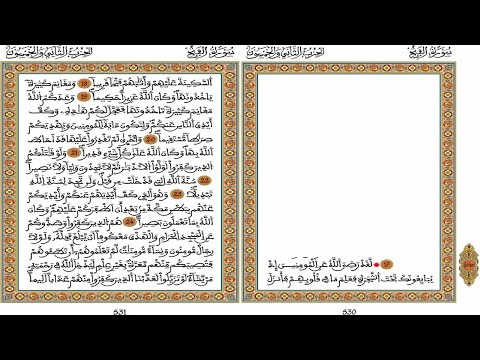 سورة الفتح
الحزب الثاني والخمسون
17 لقد رضي الله عن المومنين إذ
يبايعونك تحت الشجرة فعلم ما في قلوبهم فأنزل
530
سورة الفتح
الحزب الثاني والخمسون
السكينة عليهم وأثابهم فتحا قريبا 18 ومغانم كثيرة
ياخذونها وكان الله عزيزا حكيما 19 وعدكم الله
مغانم كثيرة تاخذونها فعجل لكم هذه وكف
أيدي الناس عنكم ولتكون ءاية للمومنين ويهديكم
صراطا مستقيما 20 وأخرى لم تقدروا عليها قد احاط
الله بها وكان الله على كل شيء قديرا 21 ولو قاتلكم
الذين كفروا لولوا الادبار ثم لا يجدون وليا ولا نصيرا
22 سنة الله التي قد خلت من قبل ولن تجد لسنة الله
تبديلا 23 وهو الذي كف أيديهم عنكم وأيديكم
عنهم ببطن مكة من بعد أن اظفركم عليهم وكان
الله بما تعملون بصيرا 24 هم الذين كفروا وصدوكم
عن المسجد الحرام والهدي معكوفا أن يبلغ محله ولولا
رجال مومنون ونساء مومنات لم تعلموهم أن تطئوهم
فتصيبكم منهم معرة بغير علم ليدخل الله في رحمته
من يشاء لو تزيلوا لعذبنا الذين كفروا منهم عذابا اليما
531